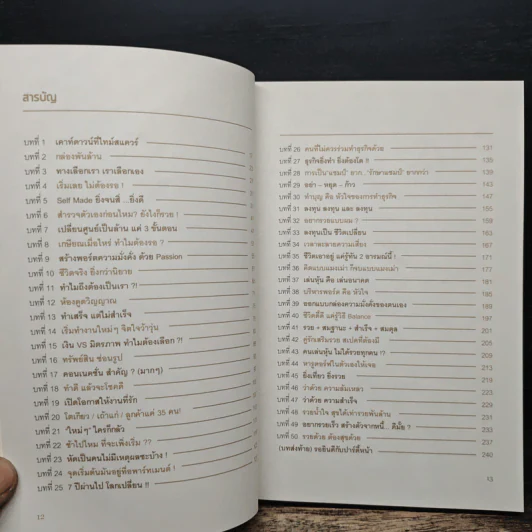 สารบัญ
บทที่ 1 เคาท์ดาวน์ที่ไทม์สแควร์
บทที่ 2 กล่องพันล้าน
บทที่ 3 ทางเลือกเรา เราเลือกเอง
บทที่ 4 เริ่มเลย ไม่ต้องรอ !
บทที่ 5 Self Made ยิ่งจนสิ ...ยิ่งดี
บทที่ 6 สำรวจตัวเองก่อนไหม? ยังไงก็รวย !
บทที่ 7 เปลี่ยนศูนย์เป็นล้าน แค่ 3 ขั้นตอน
บทที่ 8 เกษียณเมื่อไหร่ ทำไมต้องรอ ?
บทที่ 9 สร้างพอร์ตความมั่งคั่ง ด้วย Passion
บทที่ 10 ชีวิตจริง ยิ่งกว่านิยาย
บทที่ 11 ทำไมถึงต้องเป็นเรา ?!
บทที่ 12 ห้องดูดวิญญาณ
บทที่ 13 ทำเสร็จ แต่ไม่สำเร็จ
บทที่ 14 เริ่มทำงานใหม่ๆ จิตใจว้าวุ่น
บทที่ 15 เงิน VS มิตรภาพ ทำไมต้องเลือก?!
บทที่ 16 ทรัพย์สิน ซ่อนรูป
บทที่ 17 คอนเนคชั่น สำคัญ ? (มากๆ)
บทที่ 18 ทำดี แล้วจะโชคดี
บทที่ 19 เปิดโอกาสให้งานที่รัก
บทที่ 20 โตเกียว / เถ้าแก่ / ลูกค้าแค่ 35 คน!
บทที่ 21 "ใหม่ๆ" ใครก็กลัว
บทที่ 22 ช้าไปไหม ที่จะเพิ่งเริ่ม ??
บทที่ 23 หัดเป็นคนไม่มีเหตุผลซะบ้าง !
บทที่ 24 จุดเริ่มต้นมันอยู่ที่อพาร์ทเมนต์ !
บทที่ 25 7 ปีผ่านไป โลกเปลี่ยน !!
12
บทที่ 26 คนที่ไม่ควรร่วมทำธุรกิจด้วย 131
บทที่ 27 ธุรกิจยิ่งทำ ยิ่งต้องโต !! 135
บทที่ 28 การเป็น'แชมป์' ยาก...'รักษาแชมป์' ยากกว่า 139
บทที่ 29 อย่า - หยุด - ก้าว 143
บทที่ 30 ทำบุญ คือ หัวใจของการทำธุรกิจ 147
บทที่ 31 ลงทุน ลงทุน และ ลงทุน
บทที่ 32 อยากรวยแบบผม !
บทที่ 33 ลงทุนเป็น ชีวิตเปลี่ยน
บทที่ 34 เวลาละลายความเสี่ยง
บทที่ 35 ชีวิตเอาอยู่ แค่รู้ทัน 2 อารมณ์นี้ ! 171
บทที่ 36 คิดแบบแมงเม่า ก็จบแบบแมงเม่า 177
บทที่ 37 เล่นหุ้น คือ เล่นอนาคต 181
บทที่ 38 บริหารพอร์ต คือ หัวใจ
บทที่ 39 ออกแบบกล่องความมั่งคั่งของคนเอง
บทที่ 40 ชีวิตดีดี แค่รู้วิธี Balance 197
บทที่ 41 รวย + สมฐานะ + สำเร็จ + สมดุล 201
บทที่ 42 คู่รักเสริมรวย สเปคที่ต้องมี
บทที่ 43 คนเล่นหุ้น ไม่ได้รวยทุกคน !?
บทที่ 44 หาจูเตอร์ฟในตัวเองให้เจอ
บทที่ 45 ยิ่งเที่ยว ยิ่งรวย 219
บทที่ 46 ว่าด้วย ความล้มเหลว 223
บทที่ 47 ว่าด้วย ความสำเร็จ 229
บทที่ 48 รวยน้ำใจ สุขได้เท่ารวยพันล้าน 231
บทที่ 49 อยากรวยเร็ว สร้างตัวจากหนี้... ดีมั้ย ? 233
บทที่ 50 รวยด้วย ต้องสุขด้วย 237
(บทส่งท้าย) รอยินดีกับปาร์ตี้หน้า 240
13